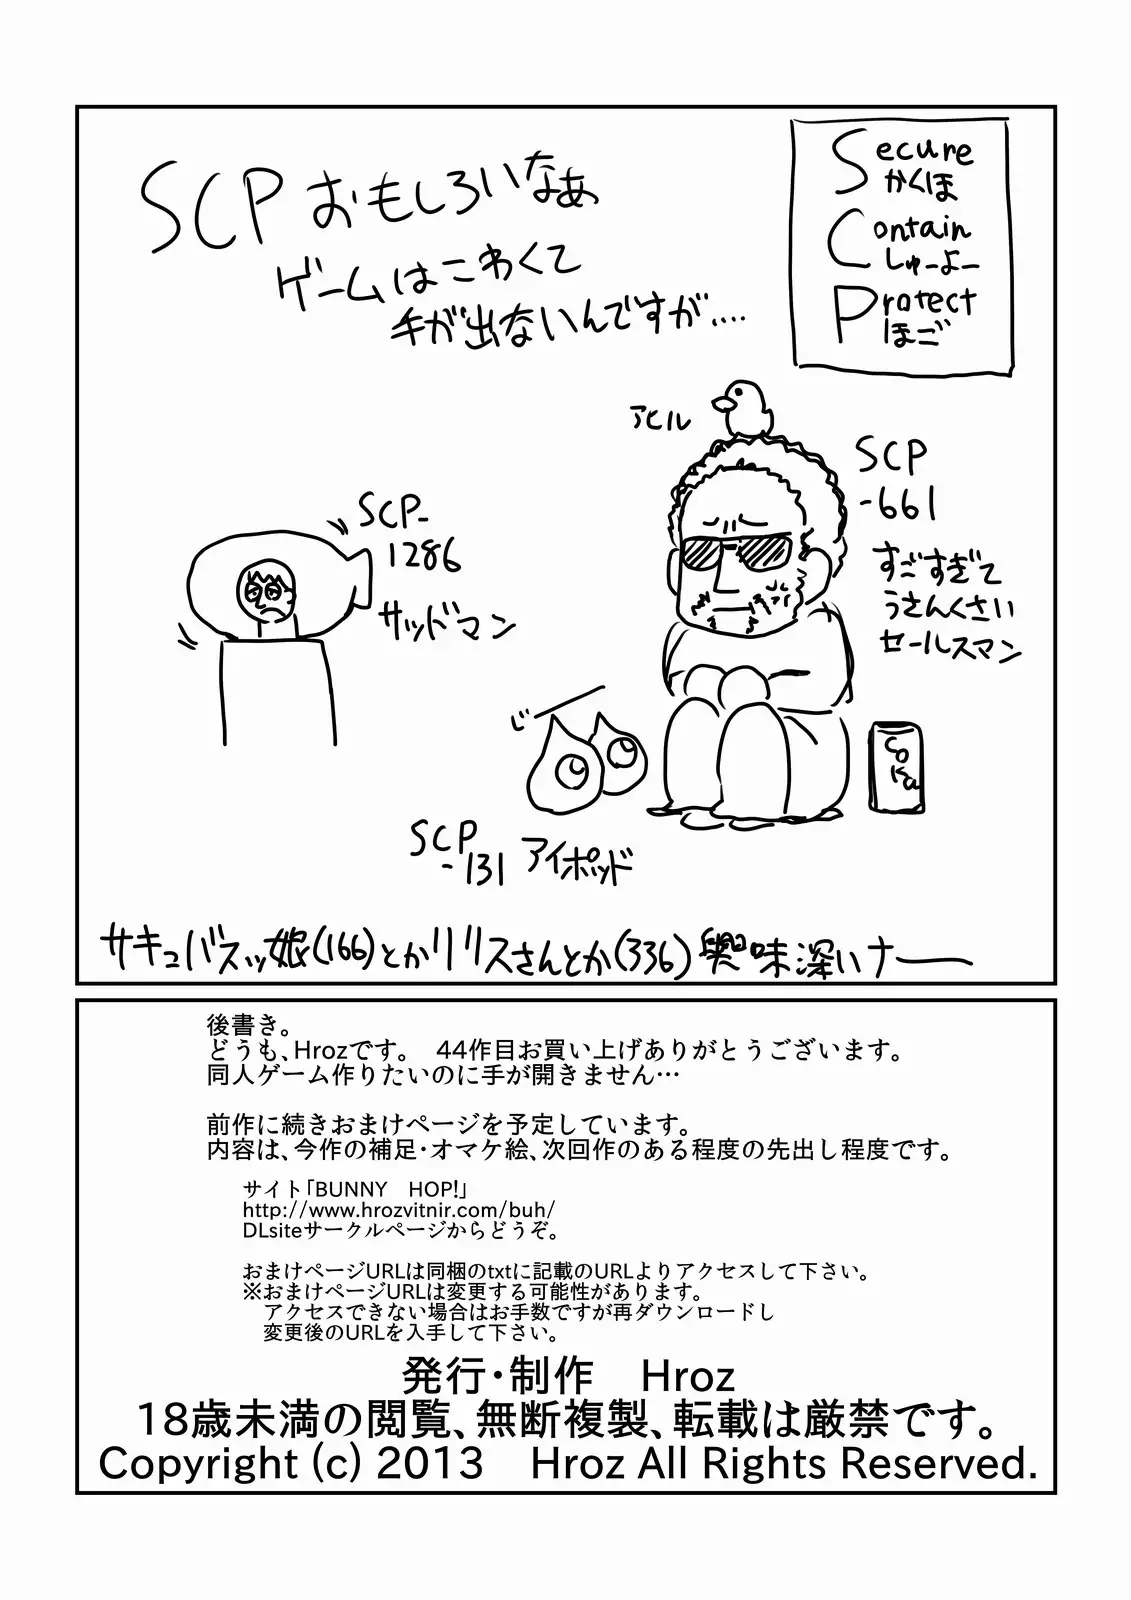 SCPおもしろいなぁ
ゲームはこわくて
手が出ないんですが....
Secure
かくほ
Contain
しゅーよー
Protect
ほご
アヒル
SCP
-661
すごすぎて
うさんくさい
セールスマン
SCP-
1286
サッドマン
じー
SCP
-131 アイポッド
CoKa
サキュバスッ娘(166)とかリリスさんとか(336)興味深いナー
後書き。
どうも、Hrozです。　44作目お買い上げありがとうございます。
同人ゲーム作りたいのに手が開きません…
前作に続きおまけページを予定しています。
内容は、今作の補足・オマケ絵、次回作のある程度の先出し程度です。
サイト「BUNNY　HOP!」
http://www.hrozvitnir.com/buh/
DLsiteサークルページからどうぞ。
おまけページURLは同梱のtxtに記載のURLよりアクセスして下さい。
※おまけページURLは変更する可能性があります。
アクセスできない場合はお手数ですが再ダウンロードし
変更後のURLを入手して下さい。
発行・制作　Hroz
18歳未満の閲覧、無断複製、転載は厳禁です。
Copyright (c) 2013　Hroz All Rights Reserved.